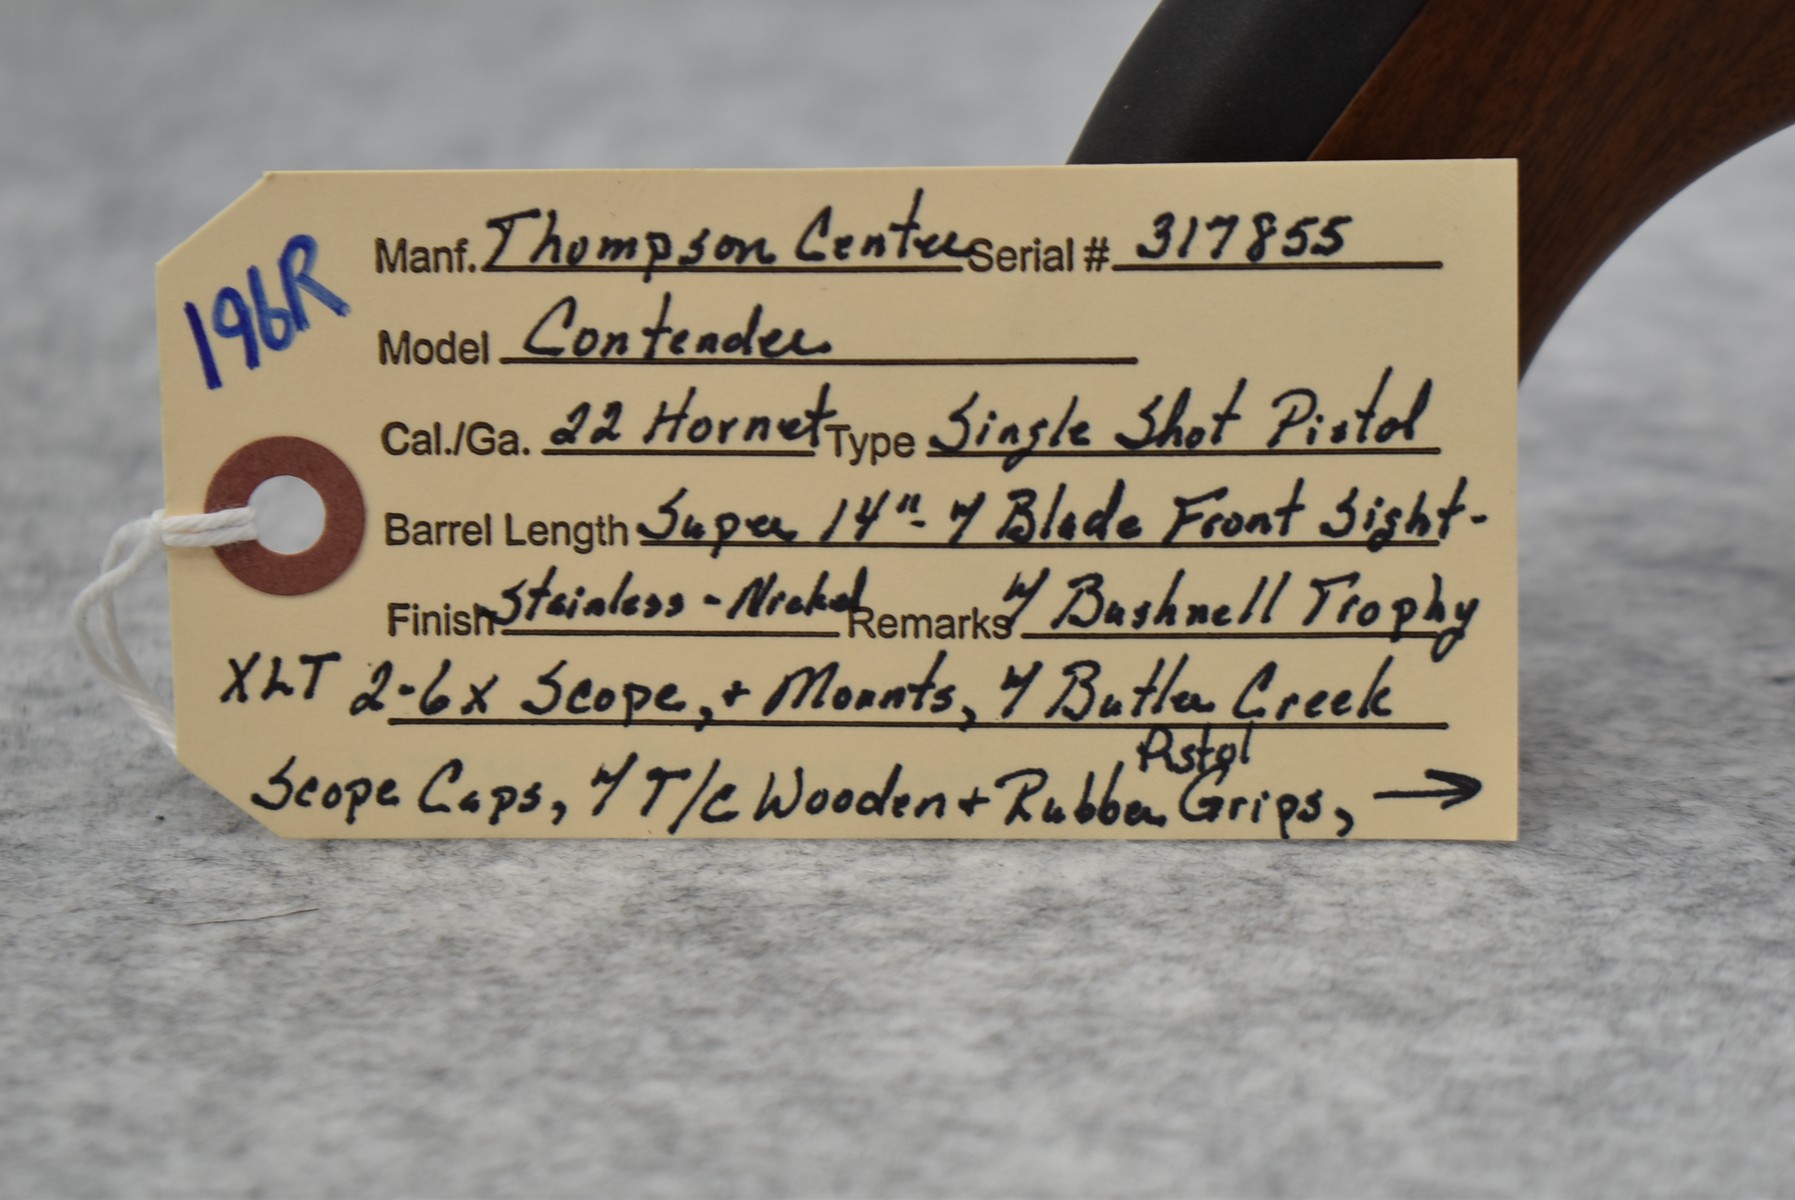 196R
Manf. Thompson Center Serial # 317855
Model Contender
Cal./Ga. 22 Hornet Type Single Shot Pistol
Barrel Length Super 14"- w/ Blade Front Sight-
Finish Stainless - Nickel Remarks w/ Bushnell Trophy
XLT 2-6x Scope, + Mounts, w/ Butler Creek
Scope Caps, w/ T/C Wooden + Rubber Pistol Grips, →